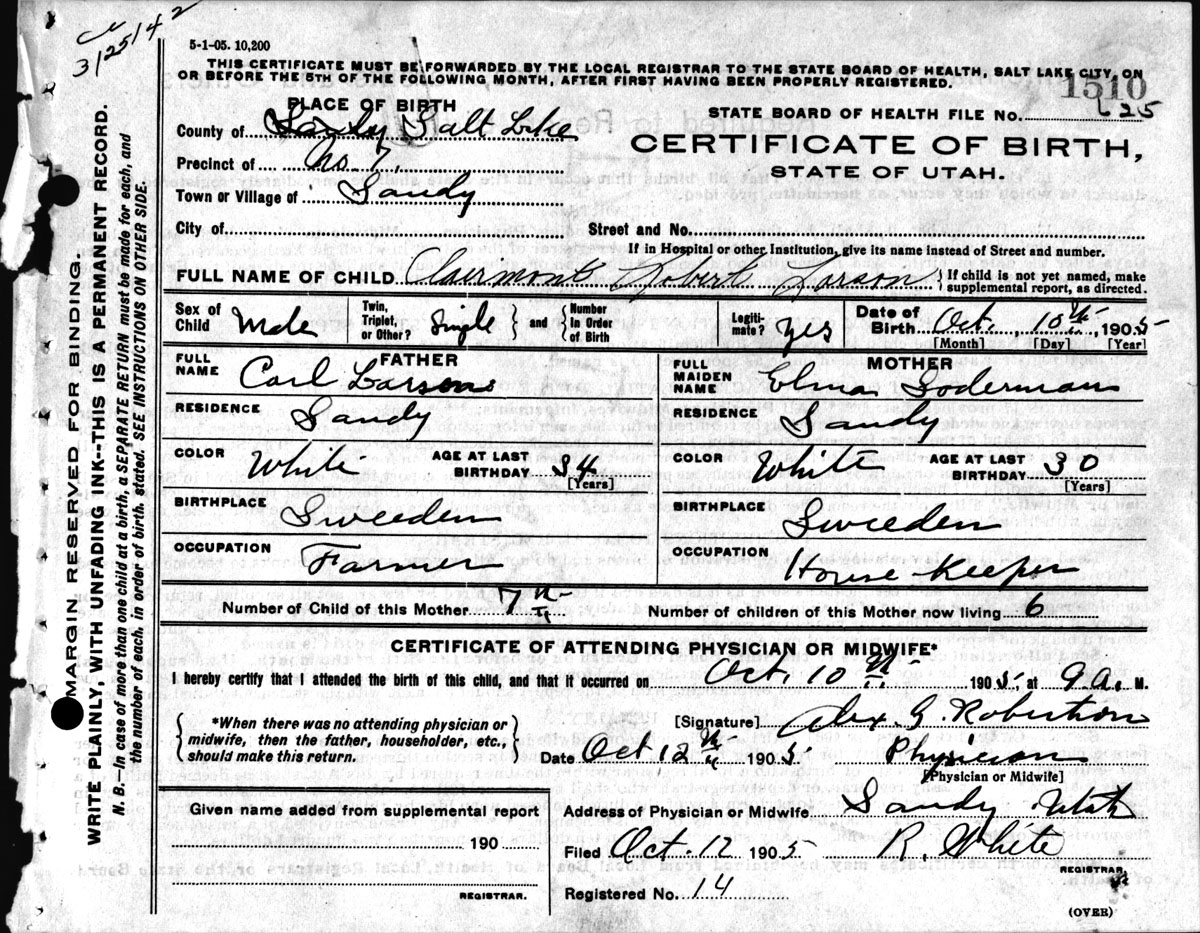 ce
3/25/42
5-1-05. 10,200
THIS CERTIFICATE MUST BE FORWARDED BY THE LOCAL REGISTRAR TO THE STATE BOARD OF HEALTH, SALT LAKE CITY, ON
OR BEFORE THE 5TH OF THE FOLLOWING MONTH, AFTER FIRST HAVING BEEN PROPERLY REGISTERED.
1510
PLACE OF BIRTH
STATE BOARD OF HEALTH FILE No. 625
County of Sandy Salt Lake
CERTIFICATE OF BIRTH,
Precinct of No. 7.
STATE OF UTAH.
Town or Village of Sandy
City of Street and No.
If in Hospital or other Institution, give its name instead of Street and number.
FULL NAME OF CHILD Clairmont Robert Larson } If child is not yet named, make supplemental report, as directed.
Sex of Child Male Twin, Triplet, or Other? Single } and { Number in Order of Birth Legiti-mate? Yes Date of Birth Oct. 10th, 1905
[Month] [Day] [Year]
FATHER MOTHER
FULL NAME Carl Larson FULL MAIDEN NAME Elma Soderman
RESIDENCE Sandy RESIDENCE Sandy
COLOR White AGE AT LAST BIRTHDAY 34 [Years] COLOR White AGE AT LAST BIRTHDAY 30 [Years]
BIRTHPLACE Sweeden BIRTHPLACE Sweeden
OCCUPATION Farmer OCCUPATION House Keeper
Number of Child of this Mother 7th Number of children of this Mother now living 6
CERTIFICATE OF ATTENDING PHYSICIAN OR MIDWIFE*
I hereby certify that I attended the birth of this child, and that it occurred on Oct. 10th 1905, at 9 a. M.
{ *When there was no attending physician or midwife, then the father, householder, etc., should make this return. }
[Signature] Alex. G. Robertson
Date Oct 12th 1905 Physician
[Physician or Midwife]
Given name added from supplemental report
Address of Physician or Midwife Sandy Utah
190
Filed Oct. 12 1905 R. White
REGISTRAR.
REGISTRAR.
Registered No. 14
(OVER)
MARGIN RESERVED FOR BINDING.
WRITE PLAINLY, WITH UNFADING INK--THIS IS A PERMANENT RECORD.
N. B.--In case of more than one child at a birth, a SEPARATE RETURN must be made for each, and
the number of each, in order of birth, stated. SEE INSTRUCTIONS ON OTHER SIDE.